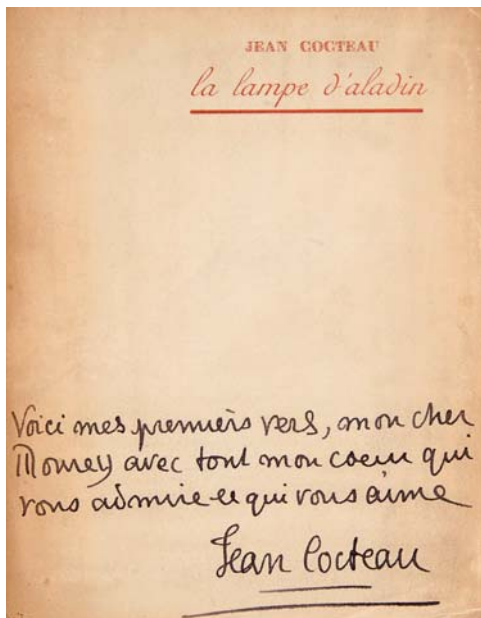 JEAN COCTEAU
la lampe d'aladin
Voici mes premiers vers, mon cher
Mourey avec tout mon coeur qui
vous admire et qui vous aime
Jean Cocteau